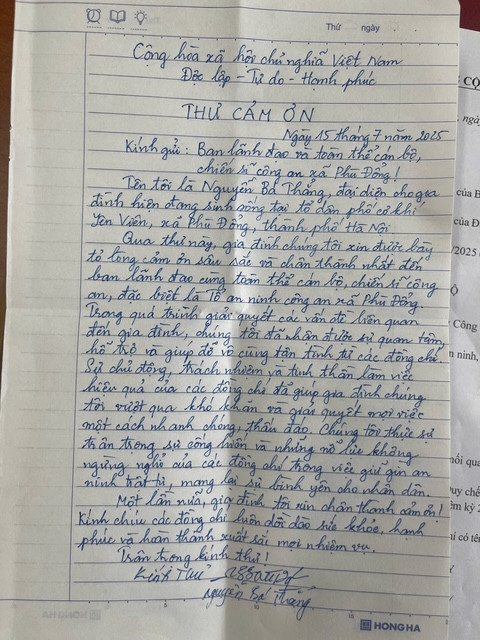 Thứ ngày
Cộng hòa xã hội chủ nghĩa Việt Nam
Độc lập - Tự do - Hạnh phúc
THƯ CẢM ƠN
Ngày 15 tháng 7 năm 2025
Kính gửi: Ban lãnh đạo và toàn thể cán bộ,
chiến sĩ công an xã Phù Đổng!
Tên tôi là Nguyễn Bá Thắng, đại diện cho gia
đình hiện đang sinh sống tại tổ dân phố cơ khí
Yên Viên, xã Phù Đổng, thành phố Hà Nội.
Qua thư này, gia đình chúng tôi xin được bày
tỏ lòng cảm ơn sâu sắc và chân thành nhất đến
ban lãnh đạo cùng toàn thể cán bộ, chiến sĩ công
an, đặc biệt là Tổ an ninh công an xã Phù Đổng.
Trong quá trình giải quyết các vấn đề liên quan
đến gia đình, chúng tôi đã nhận được sự quan tâm,
hỗ trợ và giúp đỡ vô cùng tận tình từ các đồng chí.
Sự chủ động, trách nhiệm và tinh thần làm việc
hiệu quả của các đồng chí đã giúp gia đình chúng
tôi vượt qua khó khăn và giải quyết mọi việc
một cách nhanh chóng, thấu đáo. Chúng tôi thực sự
trân trọng sự cống hiến và những nỗ lực không
ngừng nghỉ của các đồng chí trong việc giữ gìn an
ninh trật tự, mang lại sự bình yên cho nhân dân.
Một lần nữa, gia đình tôi xin chân thành cảm ơn!
Kính chúc các đồng chí luôn dồi dào sức khỏe, hạnh
phúc và hoàn thành xuất sắc mọi nhiệm vụ.
Trân trọng kính thư!
Kính Thư
Nguyễn Bá Thắng
HONG HA